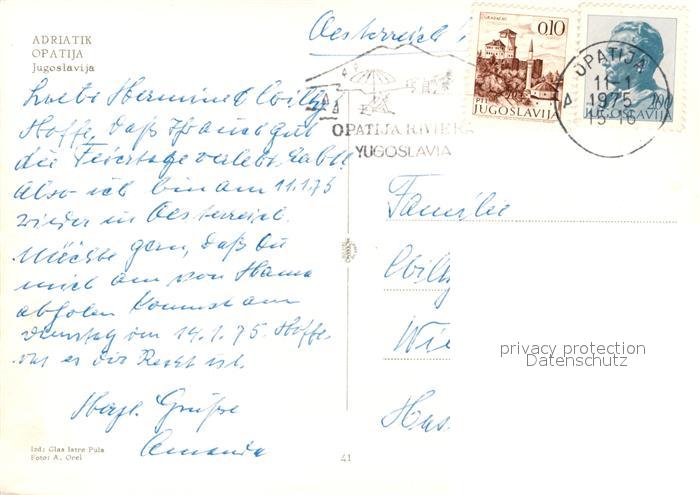 ADRIATIK
OPATIJA
Jugoslavija
Oesterreich
GRADAČAC
0.10
PTT
JUGOSLAVIJA
2,00
JUGOSLAVIJA
OPATIJA
11-1
1975
15-16
OPATIJA RIVIERA
YUGOSLAVIA
Liebe Hermine & Willy
Hoffe, daß Ihr auch gut
die Feiertage verlebt habt.
Also ich bin am 11.1.75
wieder in Oesterreich.
Möchte gern, daß Du
mich am von Hanna
abholen kommst am
Dienstag am 14.1.75. Hoffe,
das es Dir Recht ist.
Herzl. Grüße
Familie
Willy
Wie
privacy protection
Datenschutz
Has
Izd: Glas Istre Pula
Foto: A. Orel
41